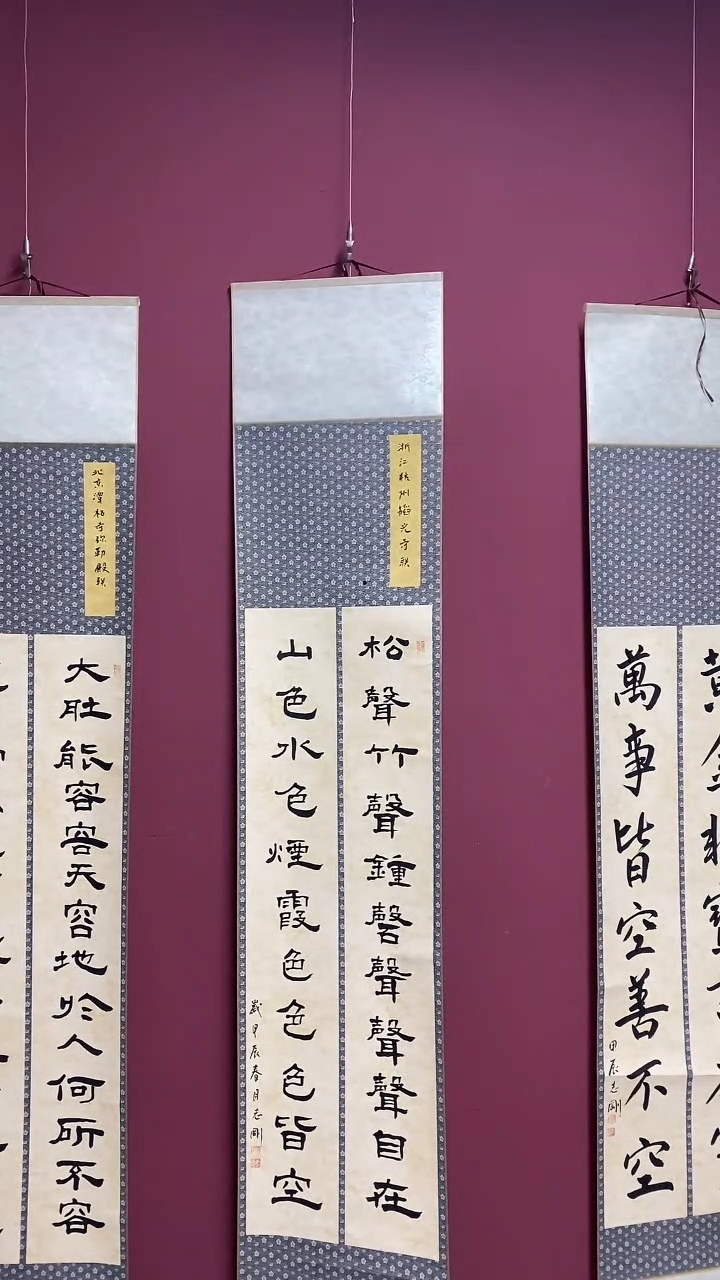 黃金
萬事皆空善不空
甲辰志剛
浙江杭州韜光寺联
松聲竹聲鍾磬聲聲聲自在
山色水色煙霞色色色皆空
歲甲辰春月志剛
北京潭柘寺弥勒殿联
大肚能容容天容地於人何所不容